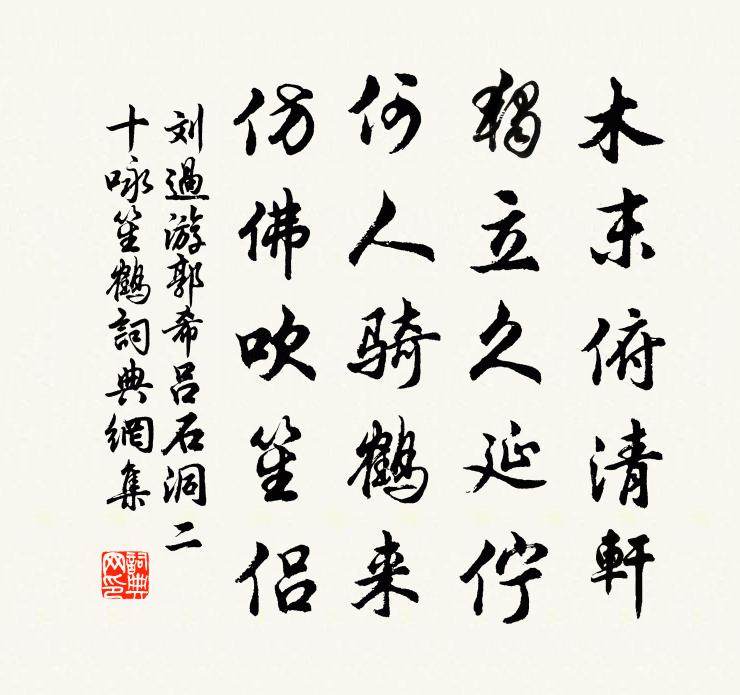 木末俯清軒
獨立久延佇
何人骑鶴来
仿佛吹笙侣
刘過游郭希吕石洞二
十咏笙鶴詞典網集
詞典
網印